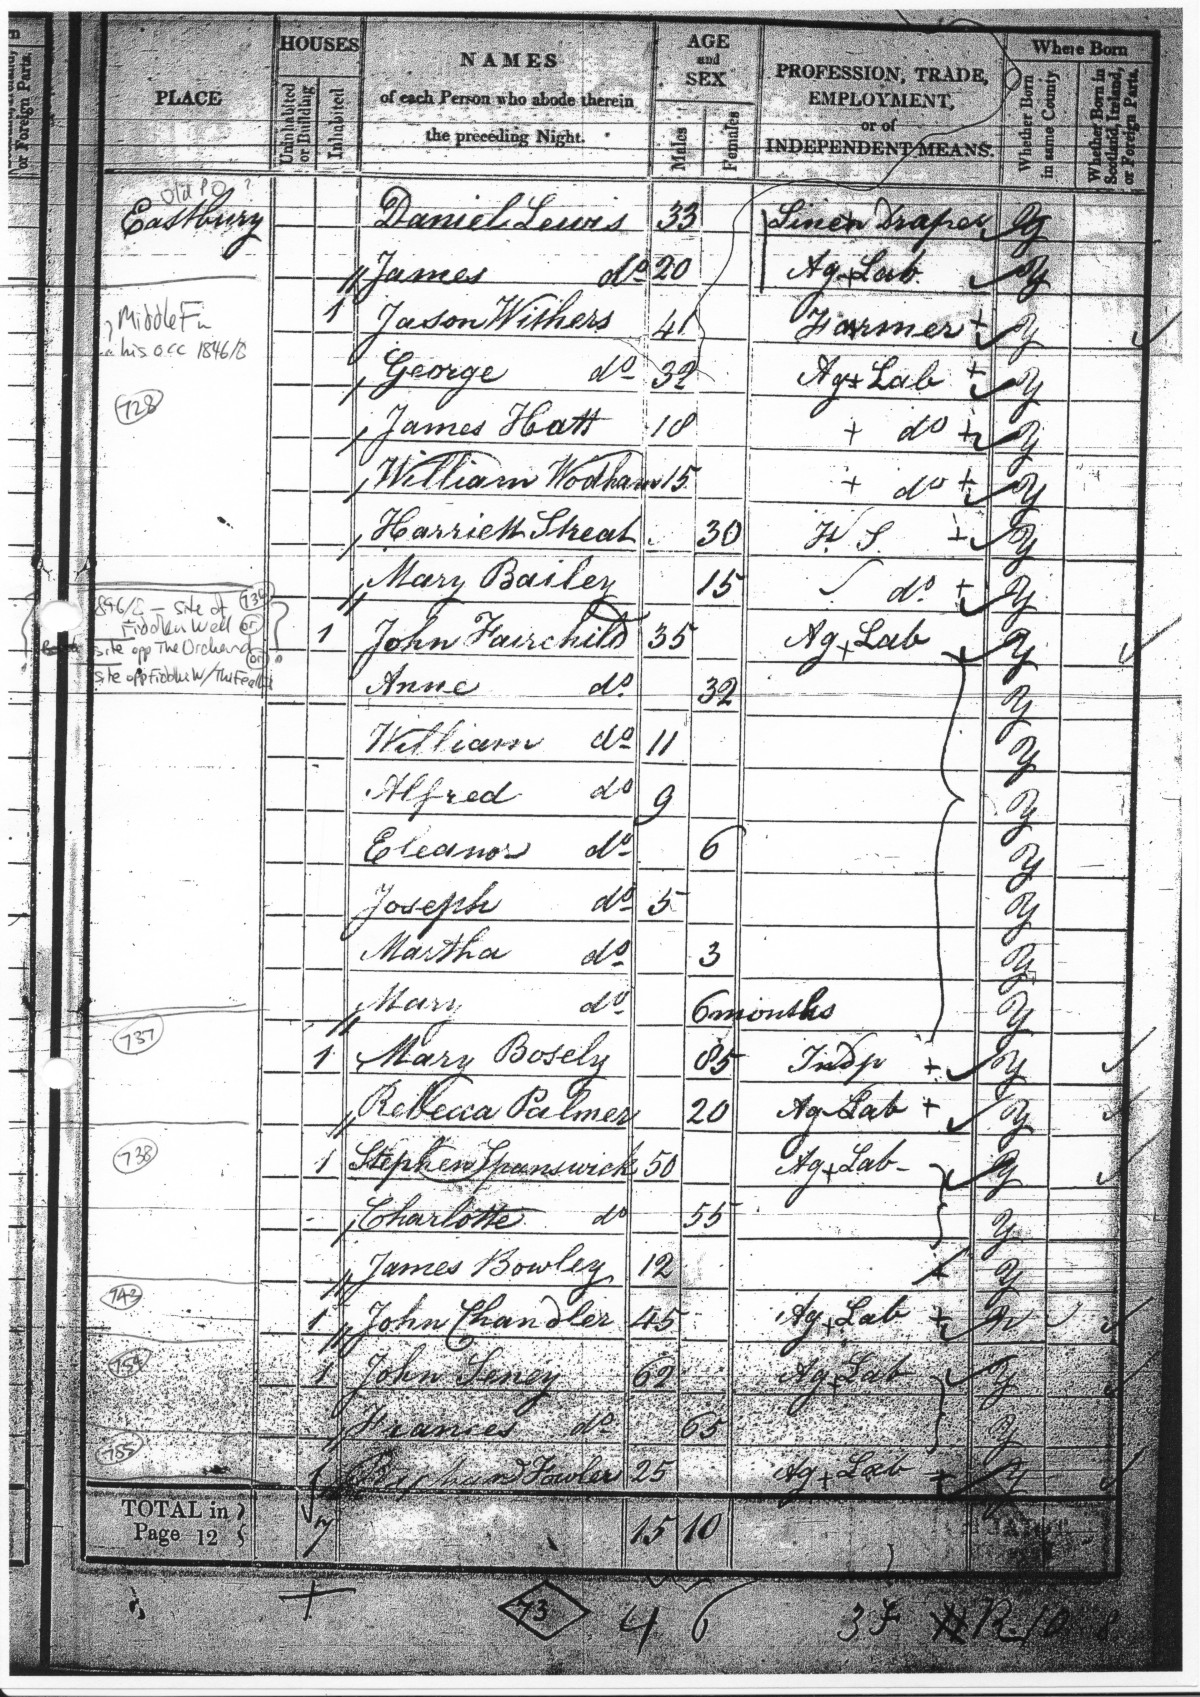 PLACE
HOUSES
Uninhabited or Building
Inhabited
NAMES
of each Person who abode therein
the preceding Night.
AGE
and
SEX
Males
Females
PROFESSION, TRADE,
EMPLOYMENT,
or of
INDEPENDENT MEANS.
Where Born
Whether Born in same County
Whether Born in Scotland, Ireland, or Foreign Parts.
or Foreign Parts.
Old PO ?
Eastbury Daniel Lewis 33 Linen Draper Y
James do 20 Ag Lab Y
Middle Fm
his occ 1846/8
1 Jason Withers 41 Farmer Y
George do 32 Ag Lab Y
728
James Hatt 18 do Y
William Wodham 15 do Y
Harriett Streat 30 F S Y
Mary Bailey 15 do Y
1846/8 - site of 734
Fiddlers Well or
site opp The Orchard or
site opp Fiddlers W/
1 John Fairchild 35 Ag Lab Y
Anne do 32 Y
William do 11 Y
Alfred do 9 Y
Eleanor do 6 Y
Joseph do 5 Y
Martha do 3 Y
Mary do 6 months Y
737
1 Mary Bosely 85 Indp Y
Rebecca Palmer 20 Ag Lab Y
738
1 Stephen Spanswick 50 Ag Lab Y
Charlotte do 55 Y
James Bowley 12 Y
742
1 John Chandler 45 Ag Lab N
754
1 John Seney 62 Ag Lab Y
Frances do 65 Y
755
1 Fowler 25 Ag Lab Y
TOTAL in
Page 12
7 15 10
73 4 6 3 F R. 10 8